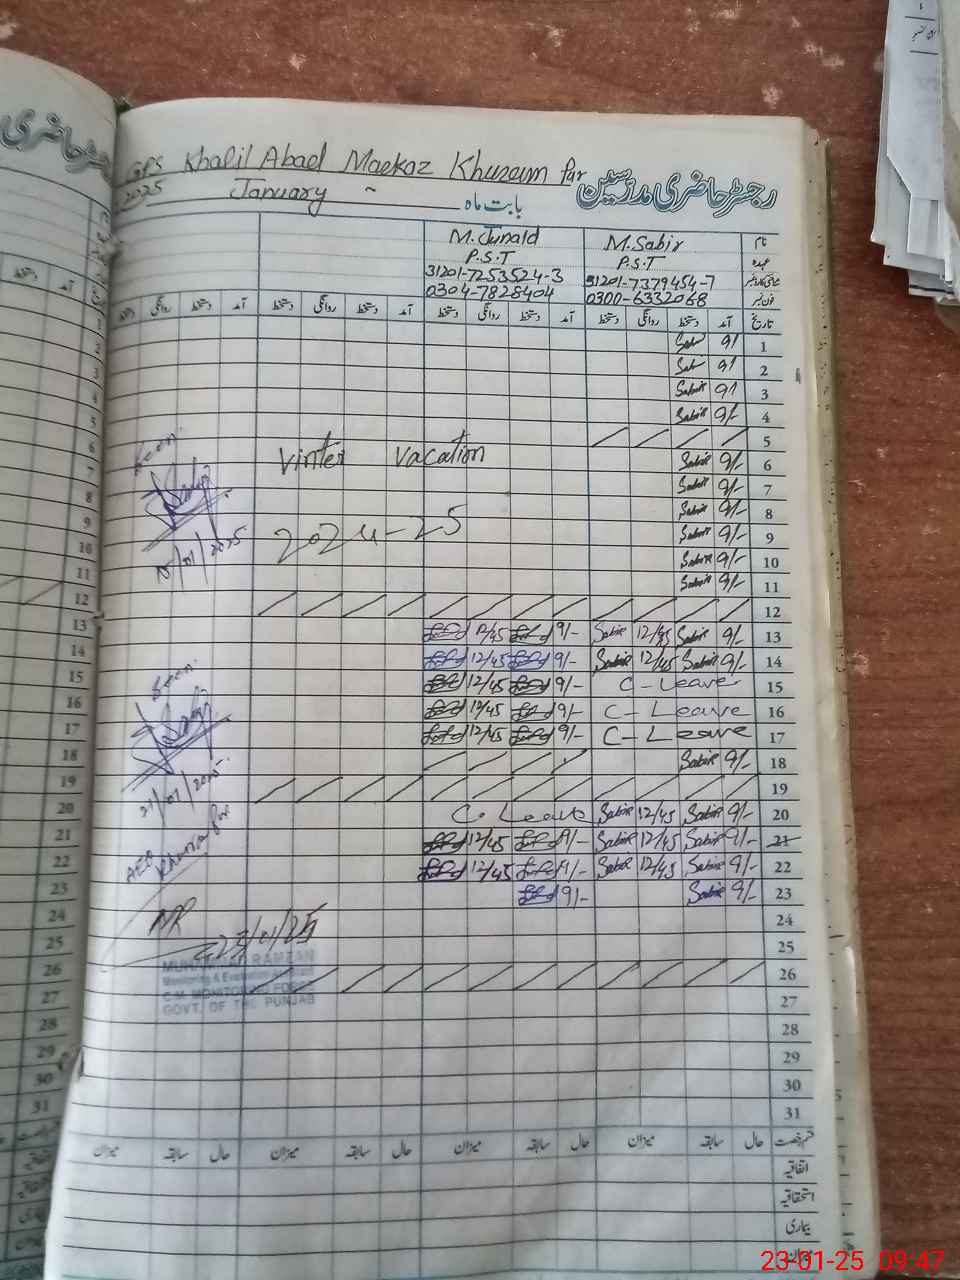 GPS Khalil Abad Markaz Khuram Pur
رجسٹر حاضری مدرسین
2025 January ~ بابت ماہ
M. Junaid M. Sabir نام
P.S.T P.S.T عہدہ
31201-7253524-3 31201-7379454-7
0304-7828404 0300-6332068 فون نمبر
دستخط روانگی دستخط آمد دستخط روانگی دستخط آمد دستخط روانگی دستخط آمد دستخط روانگی دستخط آمد تاریخ
9/ 1
9/ 2
Sabir 9/ 3
Sabir 9/- 4
5
Seen.
Vinter Vacation
Sabir 9/- 6
Sabir 9/- 7
Sabir 9/- 8
2024-25
Sabir 9/- 9
10/01/2025
Sabir 9/- 10
Sabir 9/- 11
12
12/45 9/- Sabir 12/45 Sabir 9/- 13
12/45 9/- Sabir 12/45 Sabir 9/- 14
Seen.
12/45 9/- C-Leave 15
12/45 9/- C-Leave 16
12/45 9/- C-Leave 17
Sabir 9/- 18
21/01/2025
19
C. Leave Sabir 12/45 Sabir 9/- 20
AEO
Khuram Pur
12/45 9/- Sabir 12/45 Sabir 9/- 21
12/45 9/- Sabir 12/45 Sabir 9/- 22
9/- Sabir 9/- 23
24
23/01/25
25
MUHAMMAD RAMZAN
Monitoring & Evaluation Assistant
C.M. MONITORING FORCE
GOVT. OF THE PUNJAB
26
27
28
29
30
31
میزان سابقہ حال میزان سابقہ حال میزان سابقہ حال میزان سابقہ حال قسم رخصت
اتفاقیہ
استحقاقیہ
بیماری
میزان
23-01-25 09:47